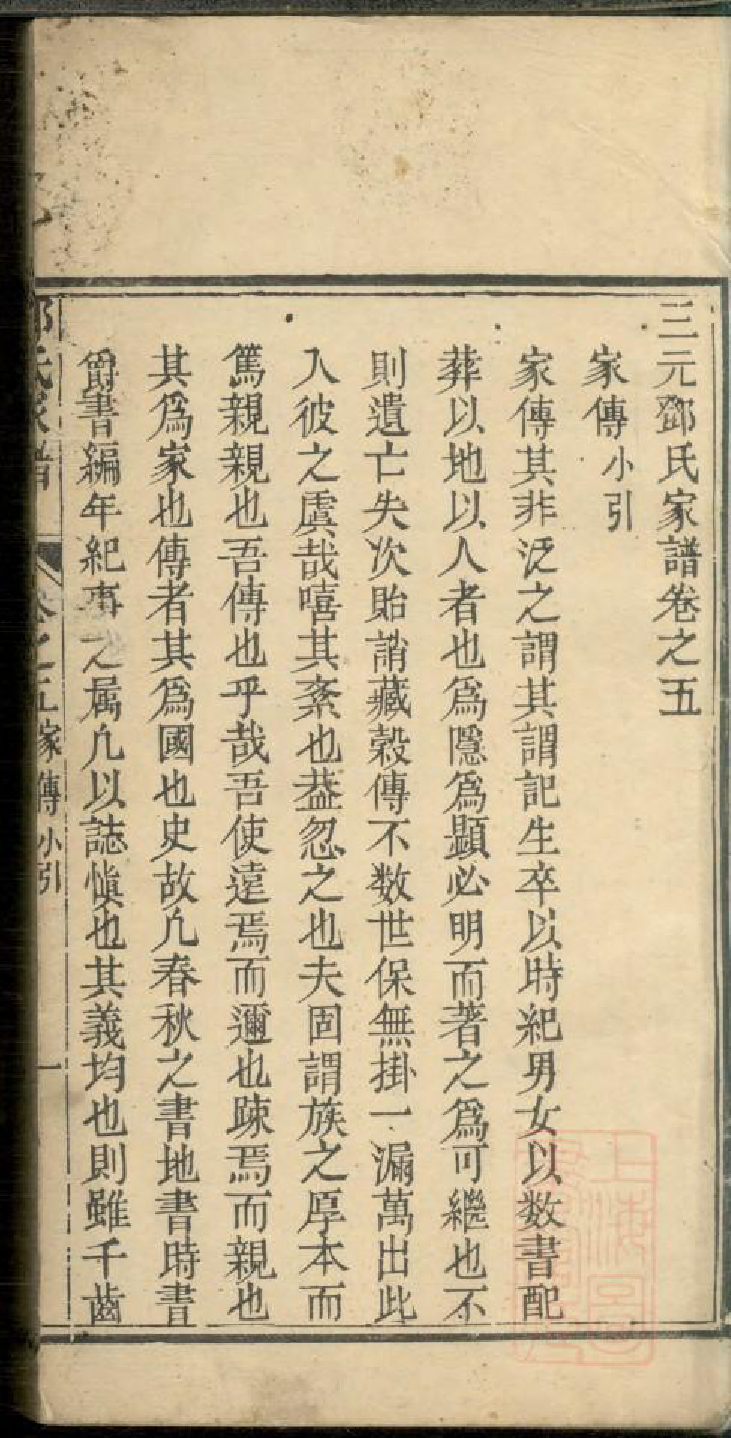 三元鄧氏家譜卷之五
家傳小引
家傳其非泛之謂其謂記生卒以時紀男女以数書配
葬以地以人者也爲隱爲顯必明而著之爲可繼也不
則遺亡失次貽誚藏穀傳不数世保無掛一漏萬出此
入彼之虞哉嘻其紊也葢忽之也夫固謂族之厚本而
篤親親也吾傳也乎哉吾使遠焉而邇也踈焉而親也
其爲家也傳者其爲國也史故凢春秋之書地書時書
爵書編年紀事之属凢以誌愼也其義均也則雖千齒
氏家譜 卷之五家傳小引 一
上海圖書館藏